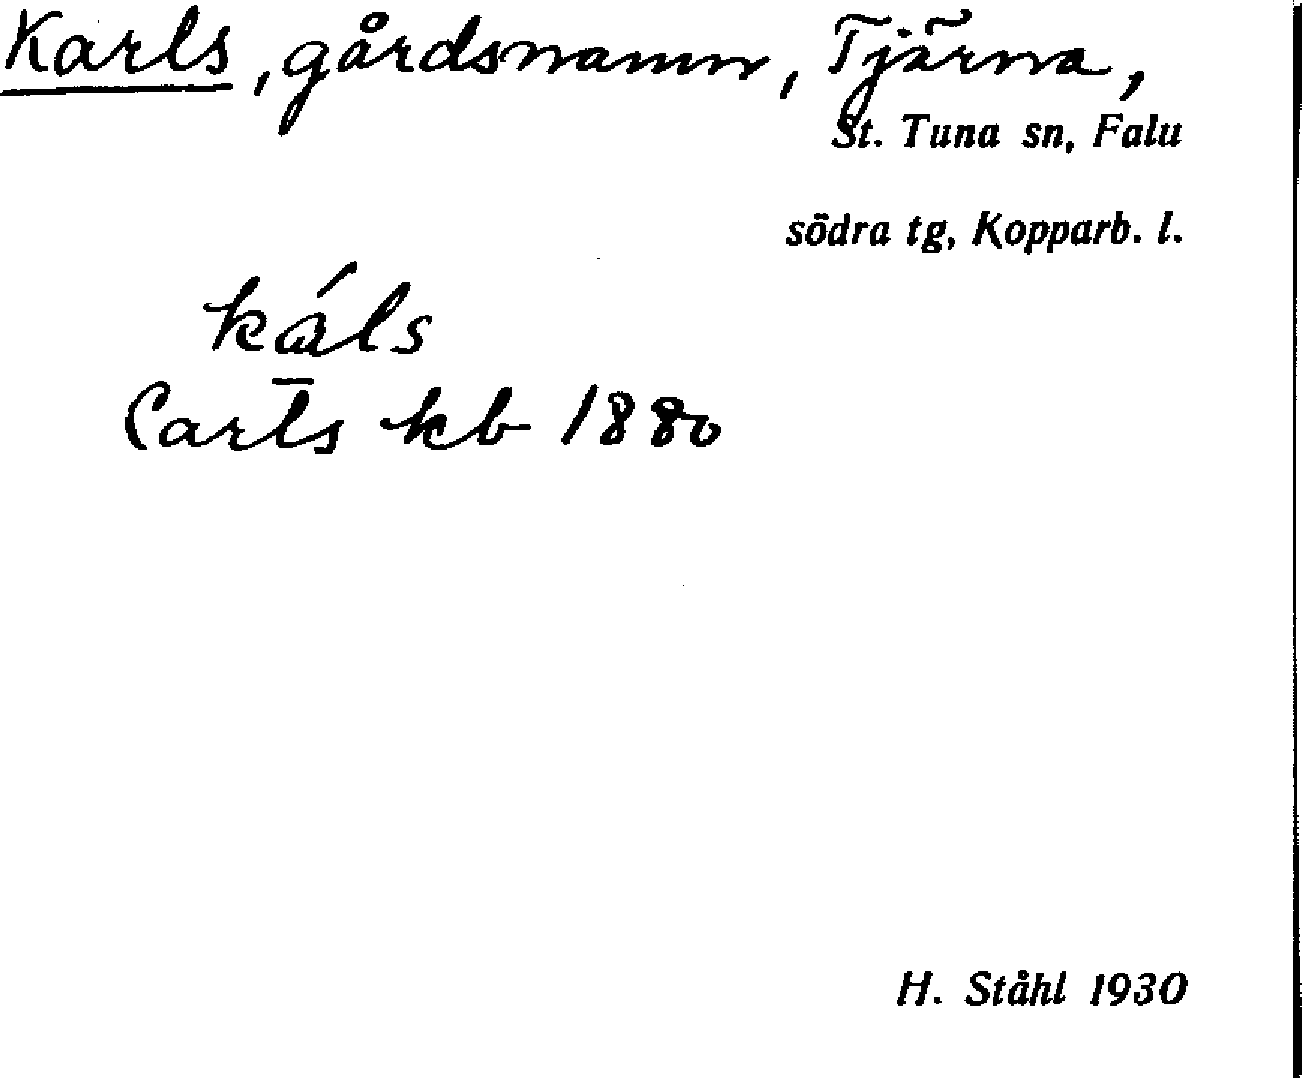 Karls, gårdsnamn, Tjärna,
St. Tuna sn, Falu
södra tg, Kopparb. l.
káls
Carls kb 1880
H. Ståhl 1930